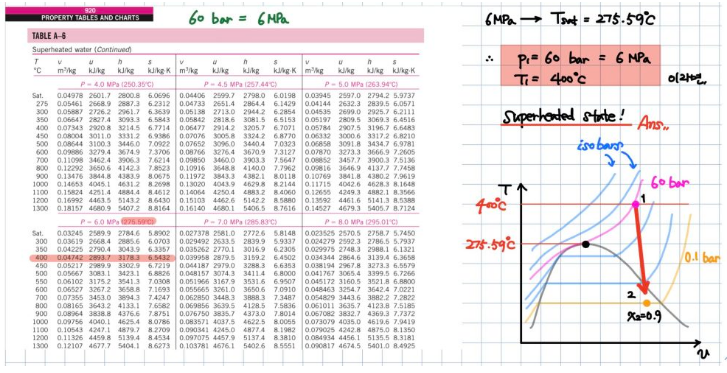 920
PROPERTY TABLES AND CHARTS
60 bar = 6 MPa
TABLE A–6
Superheated water (Continued)
T v u h s v u h s v u h s
°C m³/kg kJ/kg kJ/kg kJ/kg·K m³/kg kJ/kg kJ/kg kJ/kg·K m³/kg kJ/kg kJ/kg kJ/kg·K
P = 4.0 MPa (250.35°C) P = 4.5 MPa (257.44°C) P = 5.0 MPa (263.94°C)
Sat. 0.04978 2601.7 2800.8 6.0696 0.04406 2599.7 2798.0 6.0198 0.03945 2597.0 2794.2 5.9737
275 0.05461 2668.9 2887.3 6.2312 0.04733 2651.4 2864.4 6.1429 0.04144 2632.3 2839.5 6.0571
300 0.05887 2726.2 2961.7 6.3639 0.05138 2713.0 2944.2 6.2854 0.04535 2699.0 2925.7 6.2111
350 0.06647 2827.4 3093.3 6.5843 0.05842 2818.6 3081.5 6.5153 0.05197 2809.5 3069.3 6.4516
400 0.07343 2920.8 3214.5 6.7714 0.06477 2914.2 3205.7 6.7071 0.05784 2907.5 3196.7 6.6483
450 0.08004 3011.0 3331.2 6.9386 0.07076 3005.8 3324.2 6.8770 0.06332 3000.6 3317.2 6.8210
500 0.08644 3100.3 3446.0 7.0922 0.07652 3096.0 3440.4 7.0323 0.06858 3091.8 3434.7 6.9781
600 0.09886 3279.4 3674.9 7.3706 0.08766 3276.4 3670.9 7.3127 0.07870 3273.3 3666.9 7.2605
700 0.11098 3462.4 3906.3 7.6214 0.09850 3460.0 3903.3 7.5647 0.08852 3457.7 3900.3 7.5136
800 0.12292 3650.6 4142.3 7.8523 0.10916 3648.8 4140.0 7.7962 0.09816 3646.9 4137.7 7.7458
900 0.13476 3844.8 4383.9 8.0675 0.11972 3843.3 4382.1 8.0118 0.10769 3841.8 4380.2 7.9619
1000 0.14653 4045.1 4631.2 8.2698 0.13020 4043.9 4629.8 8.2144 0.11715 4042.6 4628.3 8.1648
1100 0.15824 4251.4 4884.4 8.4612 0.14064 4250.4 4883.2 8.4060 0.12655 4249.3 4882.1 8.3566
1200 0.16992 4463.5 5143.2 8.6430 0.15103 4462.6 5142.2 8.5880 0.13592 4461.6 5141.3 8.5388
1300 0.18157 4680.9 5407.2 8.8164 0.16140 4680.1 5406.5 8.7616 0.14527 4679.3 5405.7 8.7124
P = 6.0 MPa (275.59°C) P = 7.0 MPa (285.83°C) P = 8.0 MPa (295.01°C)
Sat. 0.03245 2589.9 2784.6 5.8902 0.027378 2581.0 2772.6 5.8148 0.023525 2570.5 2758.7 5.7450
300 0.03619 2668.4 2885.6 6.0703 0.029492 2633.5 2839.9 5.9337 0.024279 2592.3 2786.5 5.7937
350 0.04225 2790.4 3043.9 6.3357 0.035262 2770.1 3016.9 6.2305 0.029975 2748.3 2988.1 6.1321
400 0.04742 2893.7 3178.3 6.5432 0.039958 2879.5 3159.2 6.4502 0.034344 2864.6 3139.4 6.3658
450 0.05217 2989.9 3302.9 6.7219 0.044187 2979.0 3288.3 6.6353 0.038194 2967.8 3273.3 6.5579
500 0.05667 3083.1 3423.1 6.8826 0.048157 3074.3 3411.4 6.8000 0.041767 3065.4 3399.5 6.7266
550 0.06102 3175.2 3541.3 7.0308 0.051966 3167.9 3531.6 6.9507 0.045172 3160.5 3521.8 6.8800
600 0.06527 3267.2 3658.8 7.1693 0.055665 3261.0 3650.6 7.0910 0.048463 3254.7 3642.4 7.0221
700 0.07355 3453.0 3894.3 7.4247 0.062850 3448.3 3888.3 7.3487 0.054829 3443.6 3882.2 7.2822
800 0.08165 3643.2 4133.1 7.6582 0.069856 3639.5 4128.5 7.5836 0.061011 3635.7 4123.8 7.5185
900 0.08964 3838.8 4376.6 7.8751 0.076750 3835.7 4373.0 7.8014 0.067082 3832.7 4369.3 7.7372
1000 0.09756 4040.1 4625.4 8.0786 0.083571 4037.5 4622.5 8.0055 0.073079 4035.0 4619.6 7.9419
1100 0.10543 4247.1 4879.7 8.2709 0.090341 4245.0 4877.4 8.1982 0.079025 4242.8 4875.0 8.1350
1200 0.11326 4459.8 5139.4 8.4534 0.097075 4457.9 5137.4 8.3810 0.084934 4456.1 5135.5 8.3181
1300 0.12107 4677.7 5404.1 8.6273 0.103781 4676.1 5402.6 8.5551 0.090817 4674.5 5401.0 8.4925
6MPa → Tsat = 275.59°C
∴ P₁ = 60 bar = 6 MPa
T₁ = 400°C
Superheated state!
Ans..
isobars
T
60 bar
400°C
1
275.59°C
0.1 bar
2
x₂=0.9
v